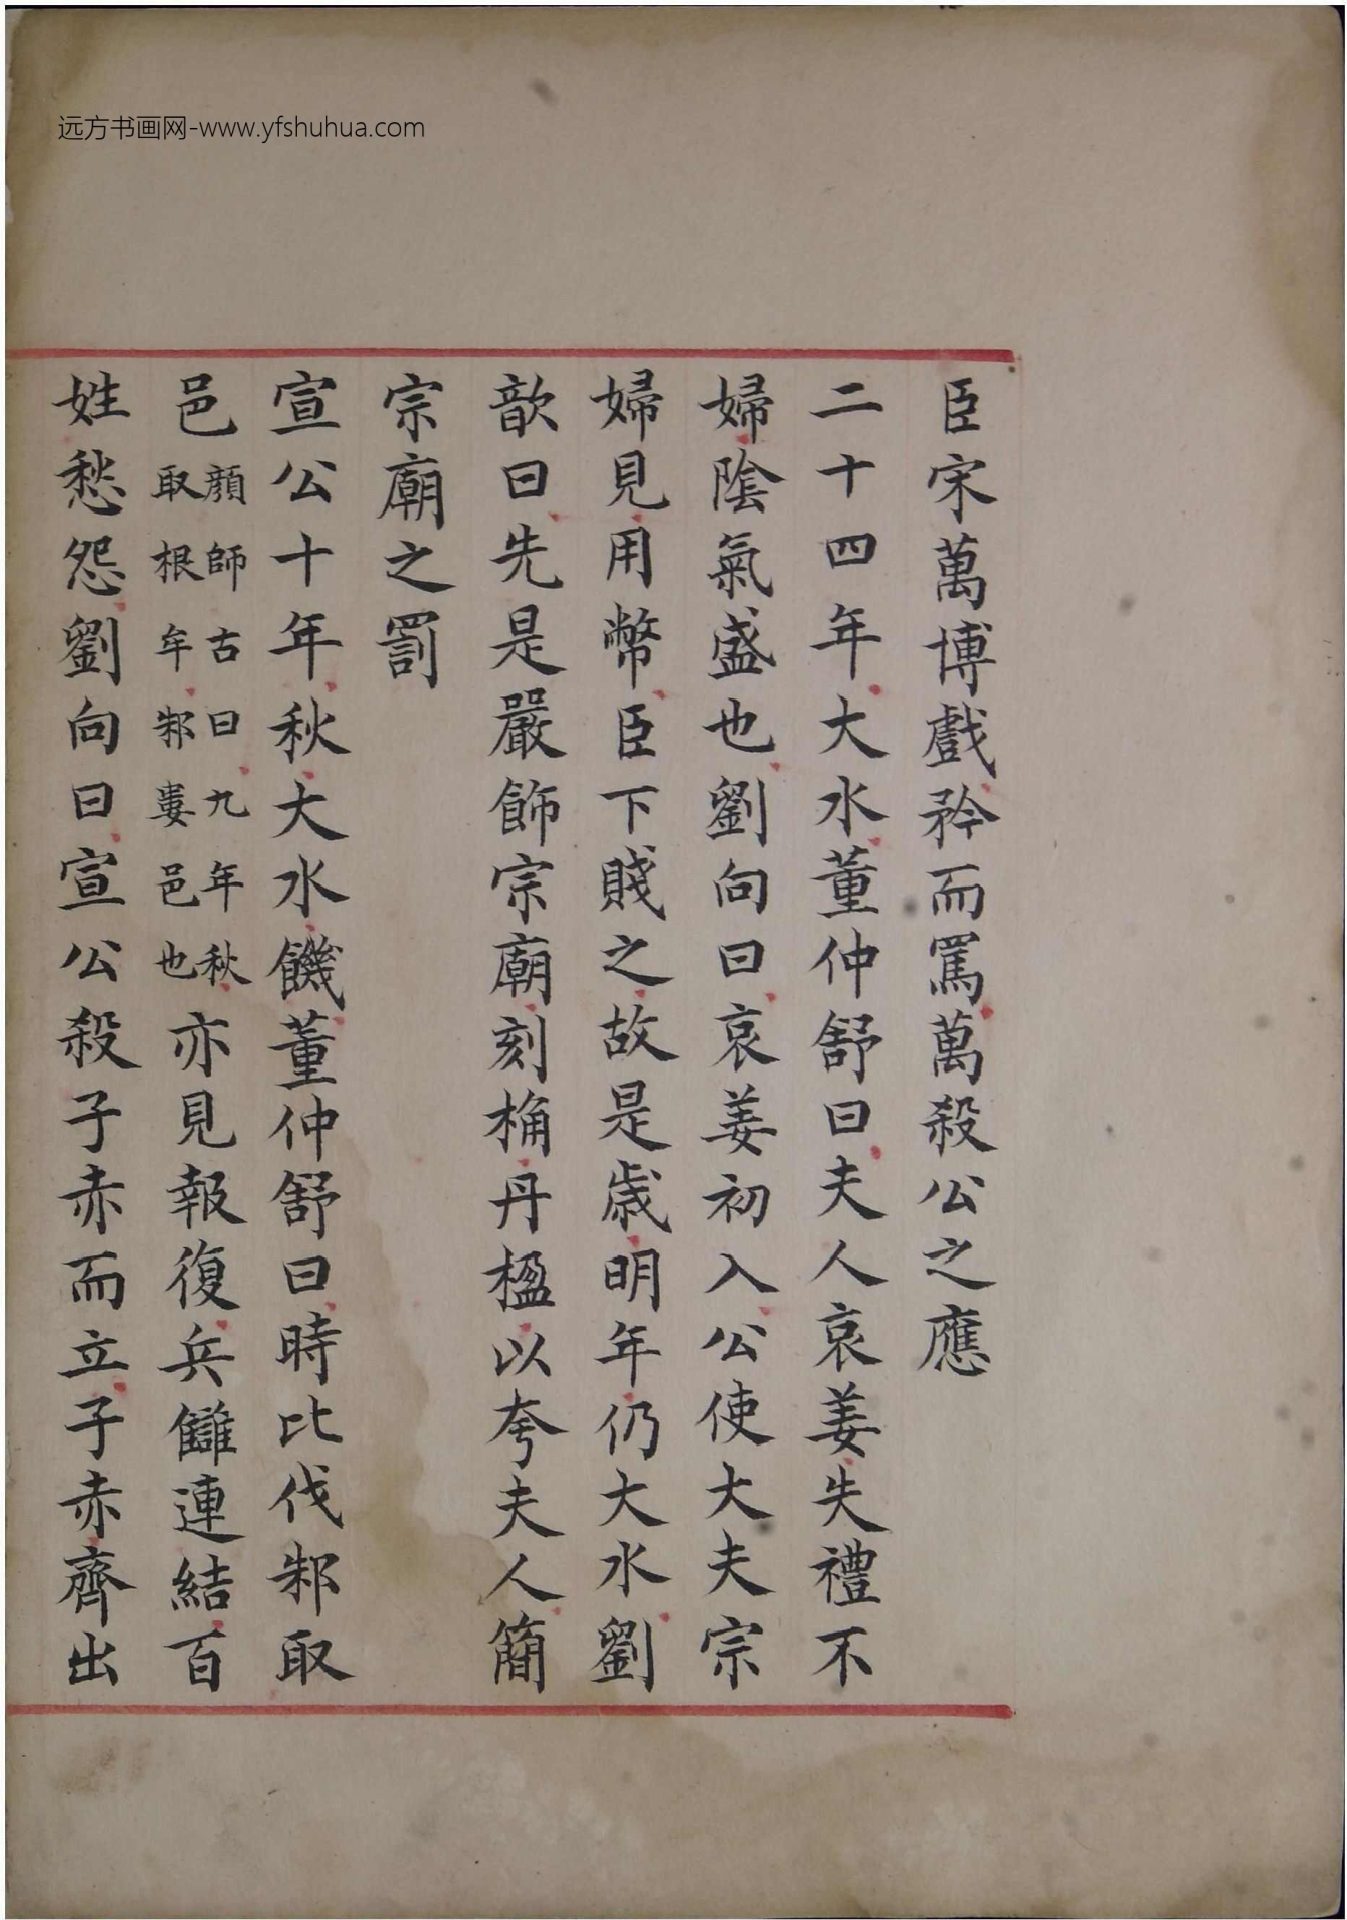 远方书画网-www.yfshuhua.com
臣宋萬博戲矜而罵萬殺公之應
二十四年大水董仲舒曰夫人哀姜失禮不
婦陰氣盛也劉向曰哀姜初入公使大夫宗
婦見用幣臣下賤之故是歲明年仍大水劉
歆曰先是嚴飾宗廟刻桷丹楹以夸夫人簡
宗廟之罰
宣公十年秋大水饑董仲舒曰時比伐邾取
邑顏師古曰九年秋取根牟邾婁邑也亦見報復兵讎連結百
姓愁怨劉向曰宣公殺子赤而立子赤齊出